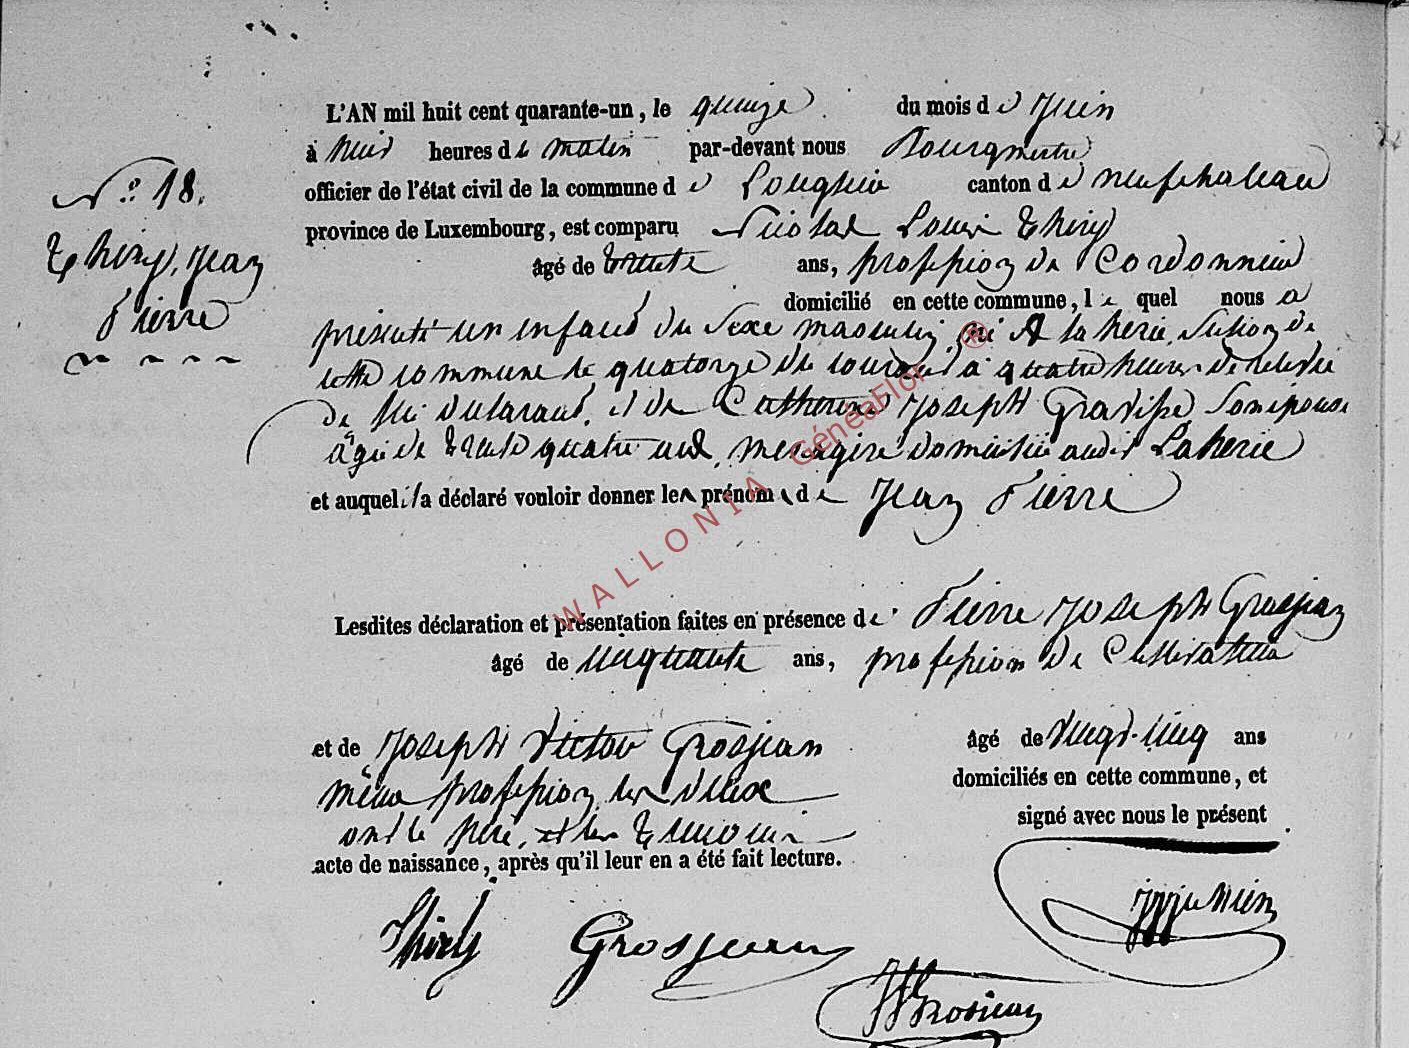 L'AN mil huit cent quarante-un, le quinze du mois de Juin
à huit heures du matin par-devant nous Bourgmestre
officier de l'état civil de la commune de Longlier canton de neufchateau
province de Luxembourg, est comparu Nicolas Louis Thiry
N.° 18.
Thiry, Jean
Pierre
âgé de trente ans, profession de Cordonnier
domicilié en cette commune, le quel nous a
présenté un enfant du Sexe masculin, né à la herie, Section de
cette commune le quatorze du courant à quatre heures de relevée
de lui déclarant, et de Catherine Joseph Gravisse Son épouse
âgée de trente quatre ans, menagère domiciliée audit Laherie
et auquel il a déclaré vouloir donner les prénoms de Jean Pierre
Lesdites déclaration et présentation faites en présence de Pierre Joseph Grosjean
âgé de cinquante ans, profession de Cultivateur
et de Joseph Victor Grosjean âgé de vingt-cinq ans
même profession, les deux domiciliés en cette commune, et
ont le père, et les témoins signé avec nous le présent
acte de naissance, après qu'il leur en a été fait lecture.
Thiry Grosjean
Grosjean
WALLONIA GénéaFlor ®